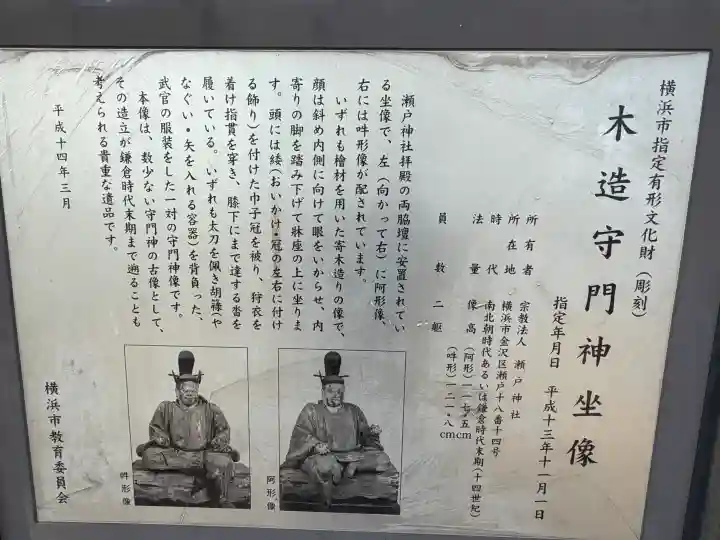 横浜市指定有形文化財(彫刻)
木造守門神坐像
指定年月日 平成十三年十一月一日
所有者 宗教法人 瀬戸神社
所在地 横浜市金沢区瀬戸十八番十四号
時代 南北朝時代あるいは鎌倉時代末期(十四世紀)
法量 像高 (阿形)一一七・五cm
(吽形)一二一・八cm
員数 二軀
瀬戸神社拝殿の両脇壇に安置されてい
る坐像で、左(向かって右)に阿形像、
右には吽形像が配されています。
いずれも檜材を用いた寄木造りの像で、
顔は斜め内側に向けて眼をいからせ、内
寄りの脚を踏み下げて牀座の上に坐りま
す。頭には緌(おいかけ・冠の左右に付け
る飾り)を付けた巾子冠を被り、狩衣を
着け指貫を穿き、膝下にまで達する沓を
履いている。いずれも太刀を佩き胡籙(や
なぐい・矢を入れる容器)を背負った、
武官の服装をした一対の守門神像です。
本像は、数少ない守門神の古像として、
その造立が鎌倉時代末期まで遡ることも
考えられる貴重な遺品です。
平成十四年三月
横浜市教育委員会
阿形像
吽形像